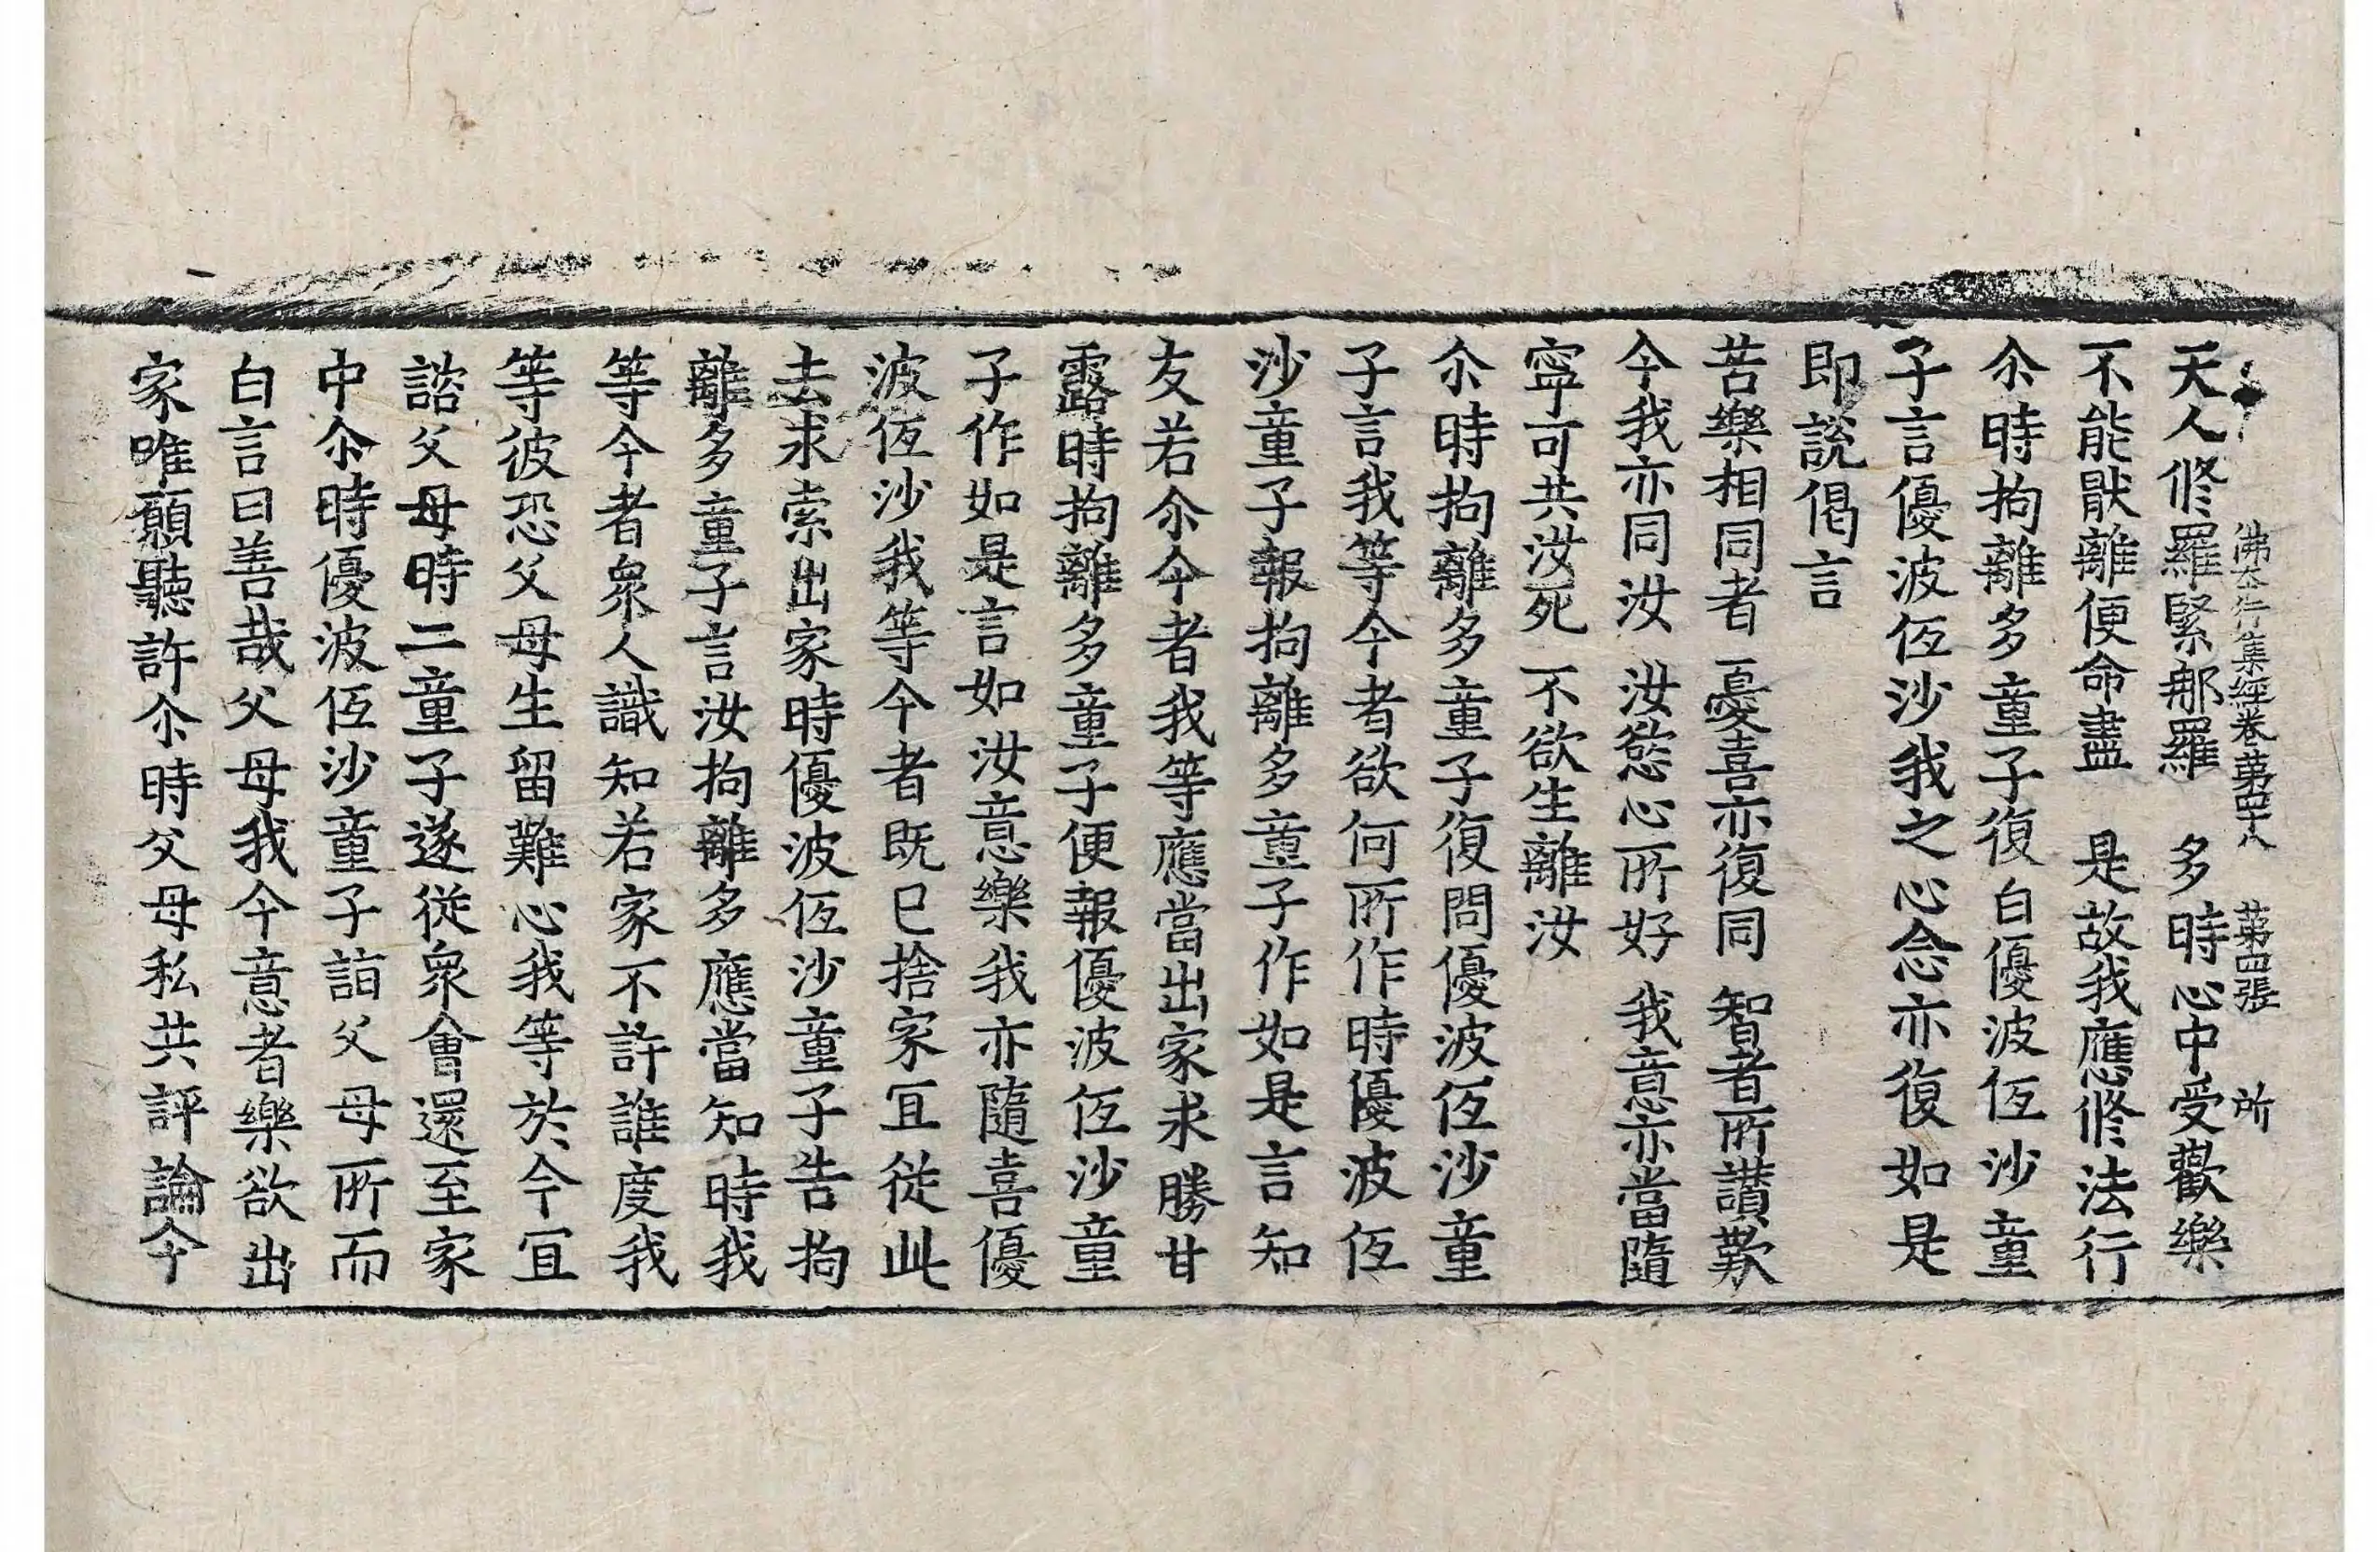 佛本行集經卷第四十八　第四張　所
天人修羅緊那羅　多時心中受歡樂
不能猒離便命盡　是故我應修法行
尒時拘離多童子復白優波低沙童
子言優波低沙我之心念亦復如是
即說偈言
苦樂相同者　憂喜亦復同　智者所讃歎
今我亦同汝　汝慾心所好　我意亦當隨
寧可共汝死　不欲生離汝
尒時拘離多童子復問優波低沙童
子言我等今者欲何所作時優波低
沙童子報拘離多童子作如是言知
友若尒今者我等應當出家求勝甘
露時拘離多童子便報優波低沙童
子作如是言如汝意樂我亦隨喜優
波低沙我等今者既已捨家冝從此
去求索出家時優波低沙童子告拘
離多童子言汝拘離多應當知時我
等今者衆人識知若家不許誰度我
等彼恐父母生留難心我等於今冝
諮父母時二童子遂從衆會還至家
中尒時優波低沙童子詣父母所而
白言曰善哉父母我今意者樂欲出
家唯願聽許尒時父母私共評論今